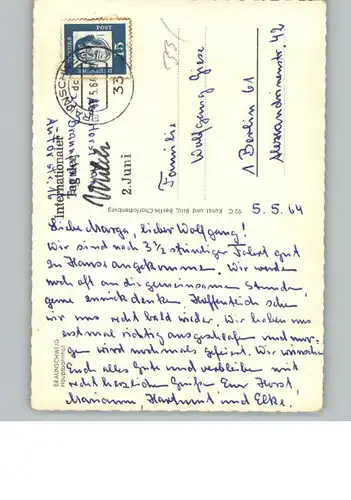 5.5.64
Liebe Marga, lieber Wolfgang!
Wir sind nach 3½ stündiger Fahrt gut
zu Hause angekommen. Wir werden
noch oft an die gemeinsamen Stunden
gerne zurückdenken. Hoffentlich sehen
wir uns recht bald wieder. Wir haben uns
erstmal richtig ausgeschlafen und mor-
gen wird nochmals gefeiert. Wir wünschen
Euch alles Gute und verbleiben mit
recht herzlichen Grüßen Eure Horst,
Marianne, Hartmut und Elke.
Familie
Wolfgang Giese
1 Berlin 61
Alexandrinenstr. 42
33
Internationaler
Tag der
Milch
2. Juni
BRAUNSCHWEIG
DEUTSCHE
15
92 C Kunst und Bild, Berlin Charlottenburg
BRAUNSCHWEIG
Hauptbahnhof